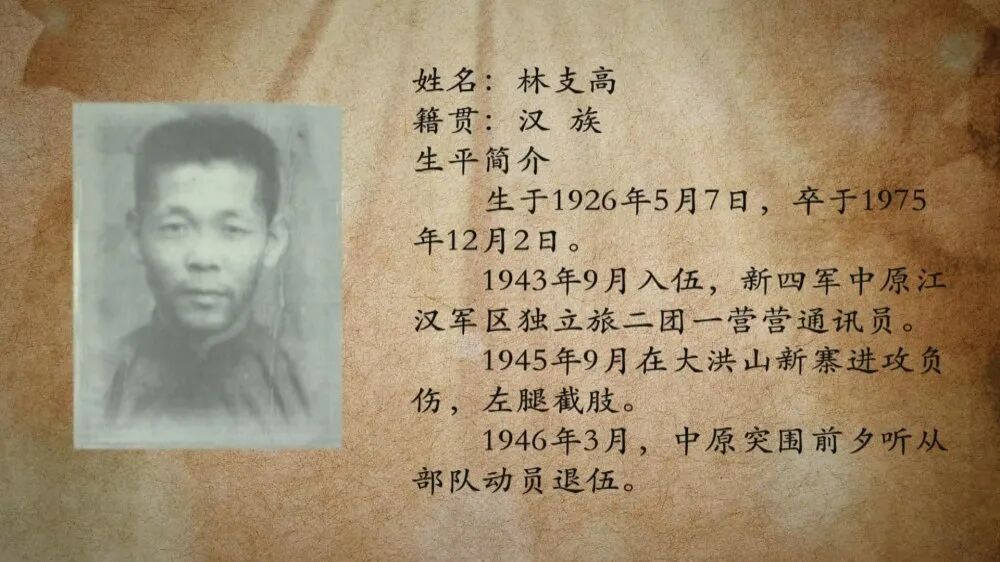 姓名：林支高
籍贯：汉 族
生平简介
生于1926年5月7日，卒于1975
年12月2日。
1943年9月入伍，新四军中原江
汉军区独立旅二团一营营通讯员。
1945年9月在大洪山新寨进攻负
伤，左腿截肢。
1946年3月，中原突围前夕听从
部队动员退伍。